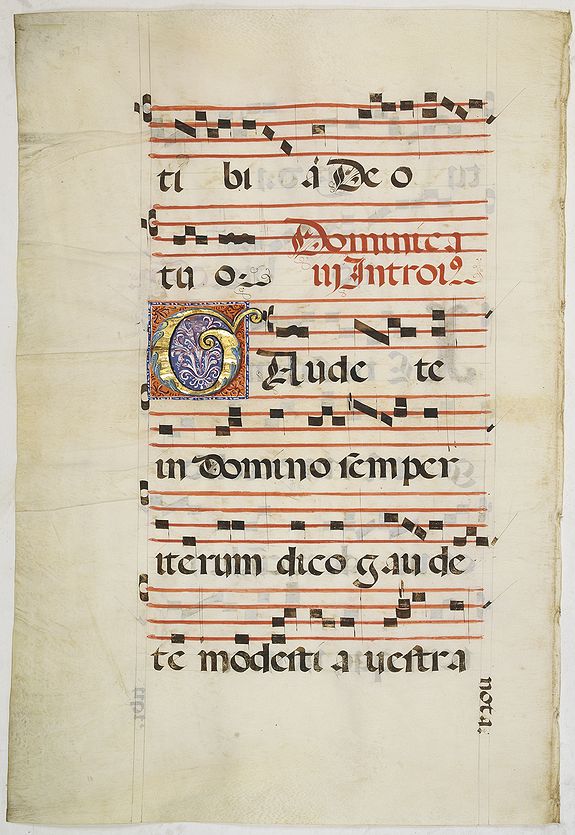 ti bi á Deo
tu o:
Dominica
iij Introi9
GAude te
in Domino semper
iterum dico gaude
te modesti a uestra
nota: